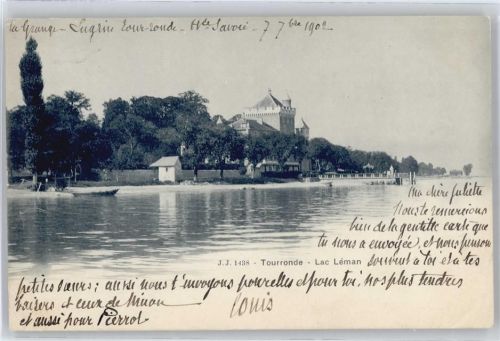 la Grange - Lugrin Tour-ronde - Hte Savoie - 7 7bre 1902
Ma chère Juliette,
Nous te remercions
bien de la gentille carte que
tu nous a envoyée, et nous pensons
J.J. 1438 - Tourronde - Lac Léman
souvent à toi et à tes
petites sœurs; aussi nous t'envoyons pour elles et pour toi, nos plus tendres
baisers et ceux de Minou
et aussi pour Pierrot
Louis